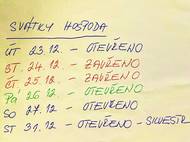 SVÁTKY HOSPODA
ÚT 23.12. - OTEVŘENO
ST. 24.12. - ZAVŘENO
ČT. 25.12. - ZAVŘENO
PÁ 26.12. - OTEVŘENO
SO 27.12. - OTEVŘENO
ST 31.12. - OTEVŘENO - SILVESTR